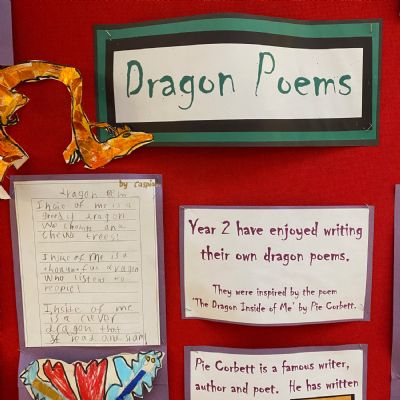 Dragon Poems
by Caspian
dragon
Insice of me is a
greedy dragon
who and
chews trees!
Insice of me is a
dragon
Who listens to
people!
Insite of me
is a clever
dragon that
read and
Year 2 have enjoyed writing
their own dragon poems.
They were inspired by the poem
'The Dragon Inside of Me' by Pie Corbett.
Pie Corbett is a famous writer,
author and poet. He has written